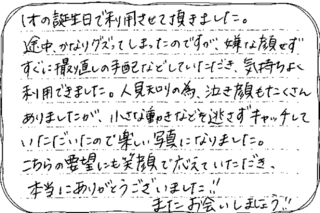 1才の誕生日で利用させて頂きました。
途中、かなりグズってしまったのですが、嫌な顔せず
すぐに撮り直しの手配などしていただき、気持ちよく
利用できました。人見知りの為、泣き顔もたくさん
ありましたが、小さな動きなどを逃さずキャッチして
いただいたので楽しい写真になりました。
こちらの要望にも笑顔で応えていただき、
本当にありがとうございました!!
またお会いしましょう!!